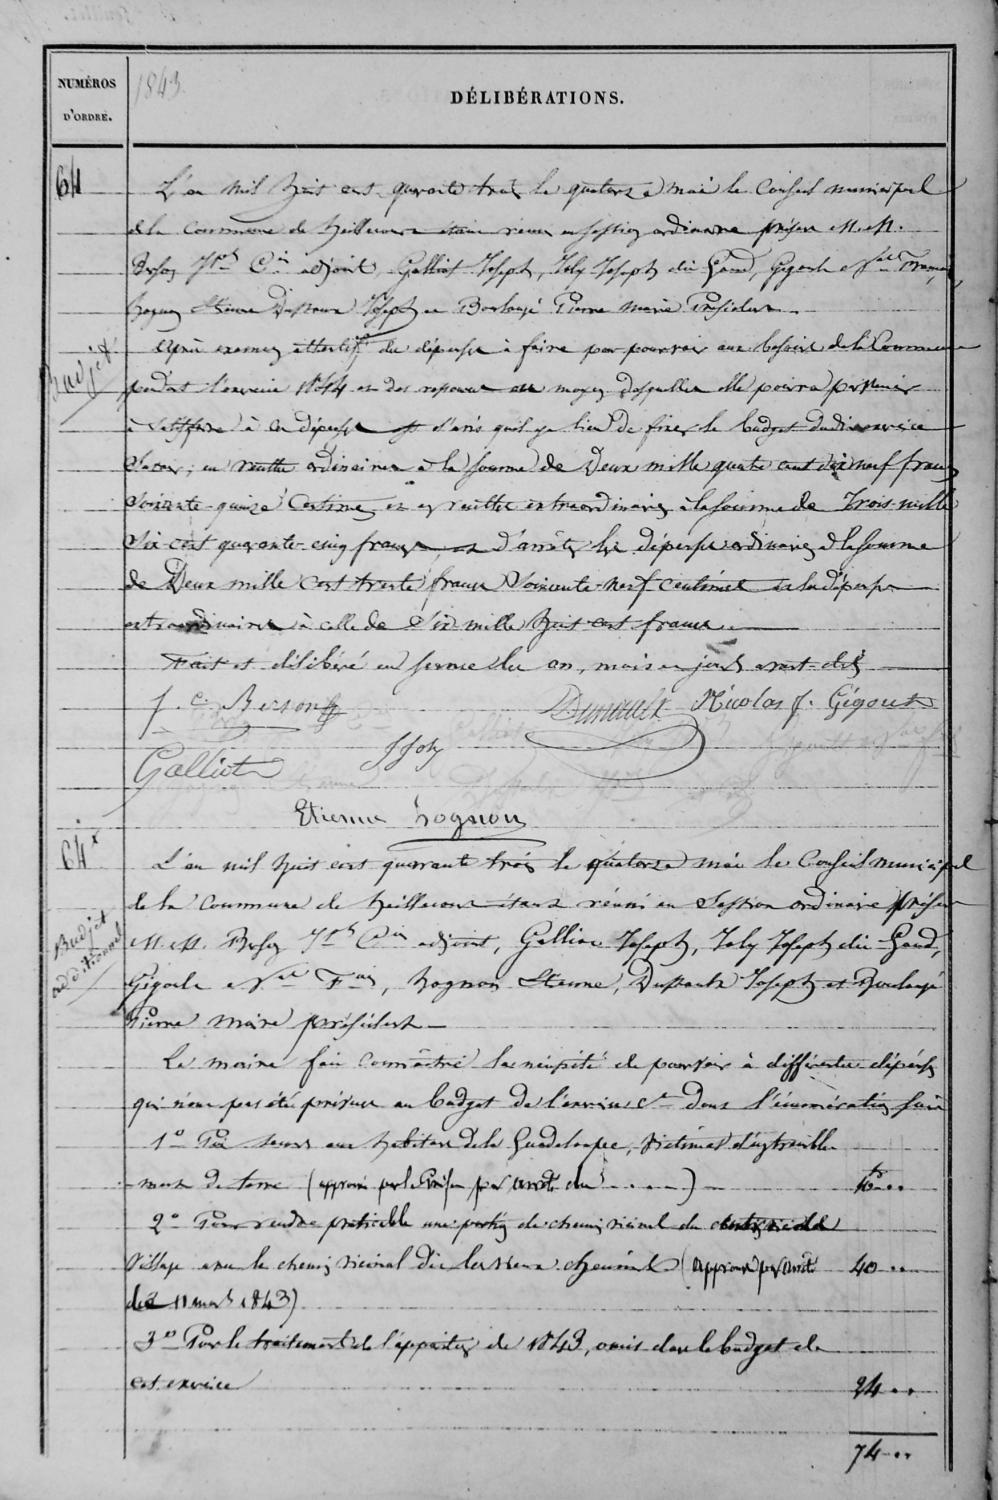 NUMÉROS
D'ORDRE.
1843.
DÉLIBÉRATIONS.
64
L'an mil huit cent quarante trois le quatorze mai le Conseil municipal
de la Commune de heillecourt étant réuni en session ordinaire présens M. M.
adjoint, Galliot Joseph, Joly Joseph dit Gand, Gigout
hognon Etienne Joseph et Boulangé Pierre Maire Président
Budjet
Après examen attentif des dépenses à faire pour pourvoir aux besoins de la Commune
pendant l'exercice 1844 et des ressources au moyen desquelles elle pourra parvenir
à satisfaire à ces dépenses est d'avis qu'il y a lieu de fixer le budget dudit exercice
Savoir, en recettes ordinaires à la somme de Deux mille quatre cent dix neuf francs
Soixante-quinze Centimes, et en recettes extraordinaires à la somme de Trois mille
Six cent quarante-cinq francs et d'arrêter les dépenses ordinaires à la somme
de Deux mille cent trente francs Soixante-neuf centimes et les dépenses
extraordinaires à celle de Six mille huit cent francs.
Fait et délibéré en séance les an, mois et jours avant dits
J. C. Berson Nicolas f. Gégout
Galliot JJoly
Etienne hognon
64 x
L'an mil huit cent quarante trois le quatorze mai le Conseil municipal
de la Commune de heillecourt étant réuni en Session ordinaire présens
Budjet
additionnel
M. M. adjoint, Galliot Joseph, Joly Joseph dit Gand,
Gigout hognon Etienne, Joseph et Boulangé
Pierre Maire président
Le maire fait connaître la nécessité de pourvoir à différentes dépenses
qui n'ont pas été prévues au budget de l'exercice Ct dont l'énumération suit
1° Pour secours aux habitans de la Guadeloupe, victimes d'un tremble
ment de terre (approuvé par le Préfet par arrêté du .....) 10 ..
2° Pour rendre praticable une partie de chemin vicinal du
village avec le chemin vicinal dit (approuvé par arrêté 40 ..
du 11 mars 1843)
3° Pour le traitement de l'appariteur de 1843, omis dans le budget de
cet exercice 24 ..
74 ..